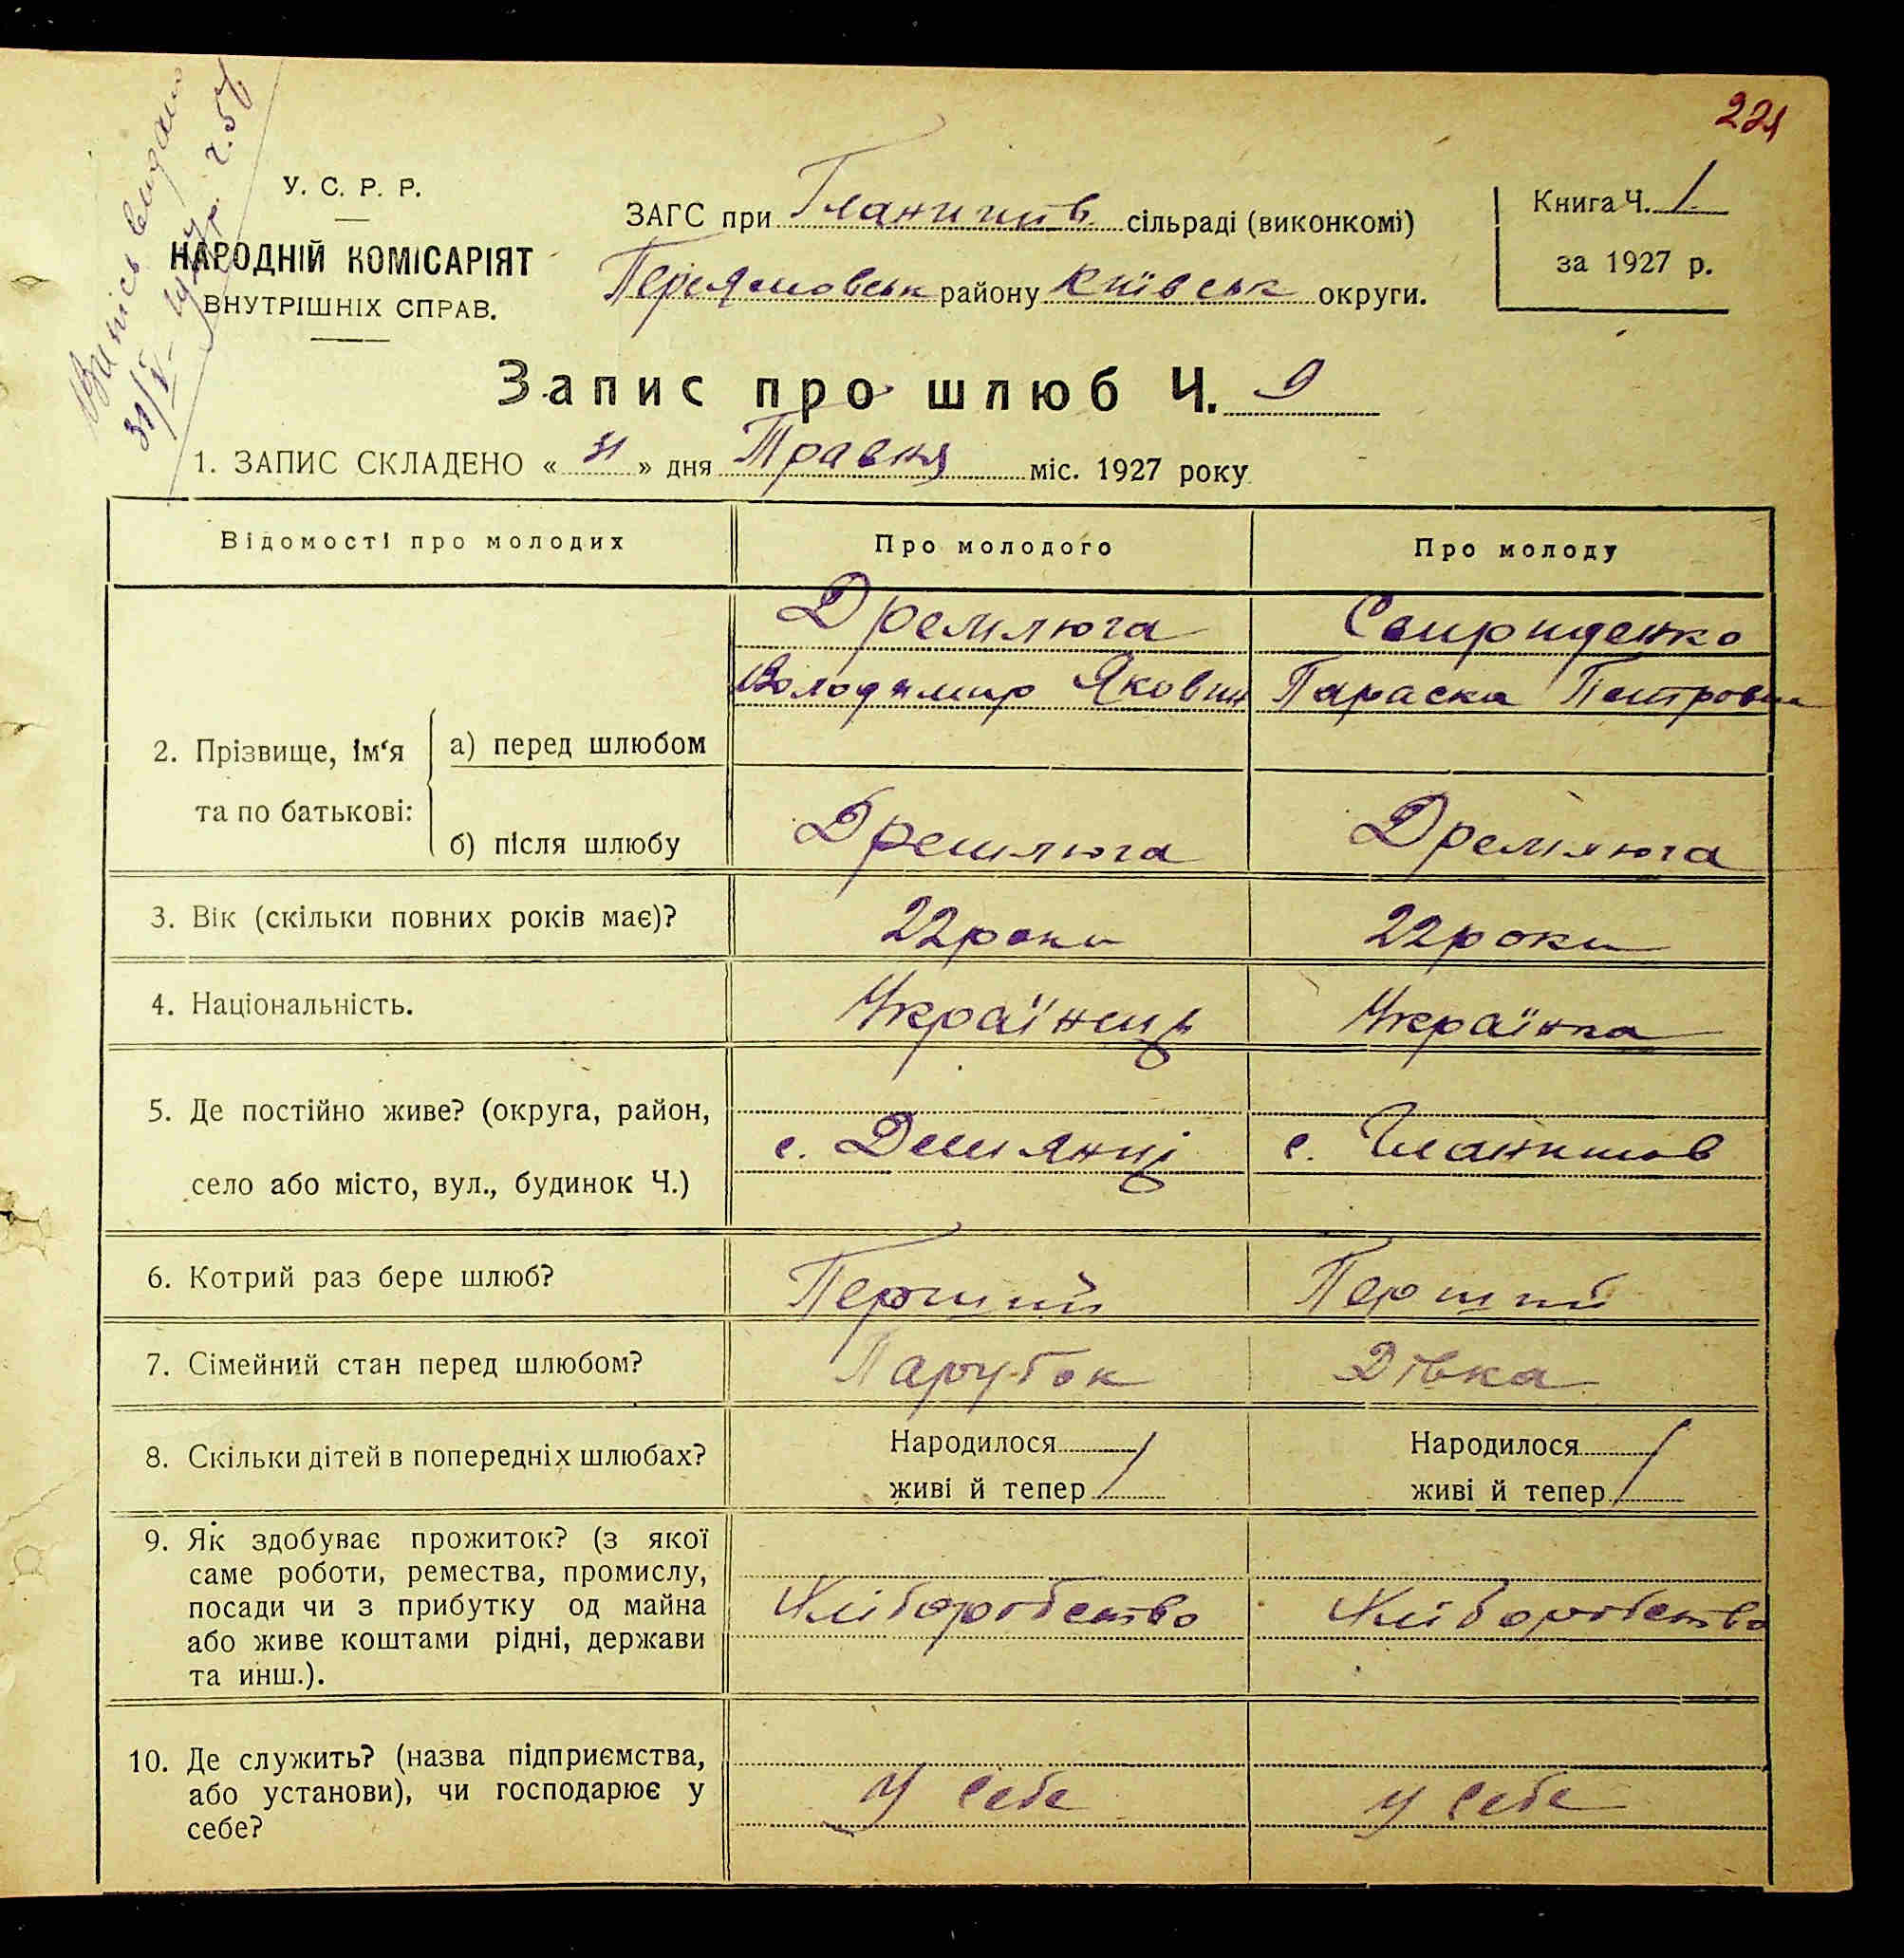 221
Випись видано
31/V 1927 р. ч. 57
У. С. Р. Р.
НАРОДНІЙ КОМІСАРІЯТ
ВНУТРІШНІХ СПРАВ.
ЗАГС при Гланишів сільраді (виконкомі)
Переяславськ району Київськ округи.
Книга Ч. 1
за 1927 р.
Запис про шлюб Ч. 9
1. ЗАПИС СКЛАДЕНО « 31 » дня Травня міс. 1927 року
Відомості про молодих
Про молодого
Про молоду
2. Прізвище, ім‘я та по батькові:
а) перед шлюбом
Дремлюга
Володимир Якович
Свириденко
Параска Петровна
б) після шлюбу
Дремлюга
Дремлюга
3. Вік (скільки повних років має)?
22 роки
22 роки
4. Національність.
Українець
Українка
5. Де постійно живе? (округа, район,
село або місто, вул., будинок Ч.)
с. Дем'янці
с. Гланишов
6. Котрий раз бере шлюб?
Перший
Перший
7. Сімейний стан перед шлюбом?
Парубок
Дівка
8. Скільки дітей в попередніх шлюбах?
Народилося
живі й тепер
Народилося
живі й тепер
9. Як здобуває прожиток? (з якої
саме роботи, ремества, промислу,
посади чи з прибутку од майна
або живе коштами рідні, держави
та инш.).
Хліборобство
Хліборобство
10. Де служить? (назва підприємства,
або установи), чи господарює у
себе?
У себе
У себе